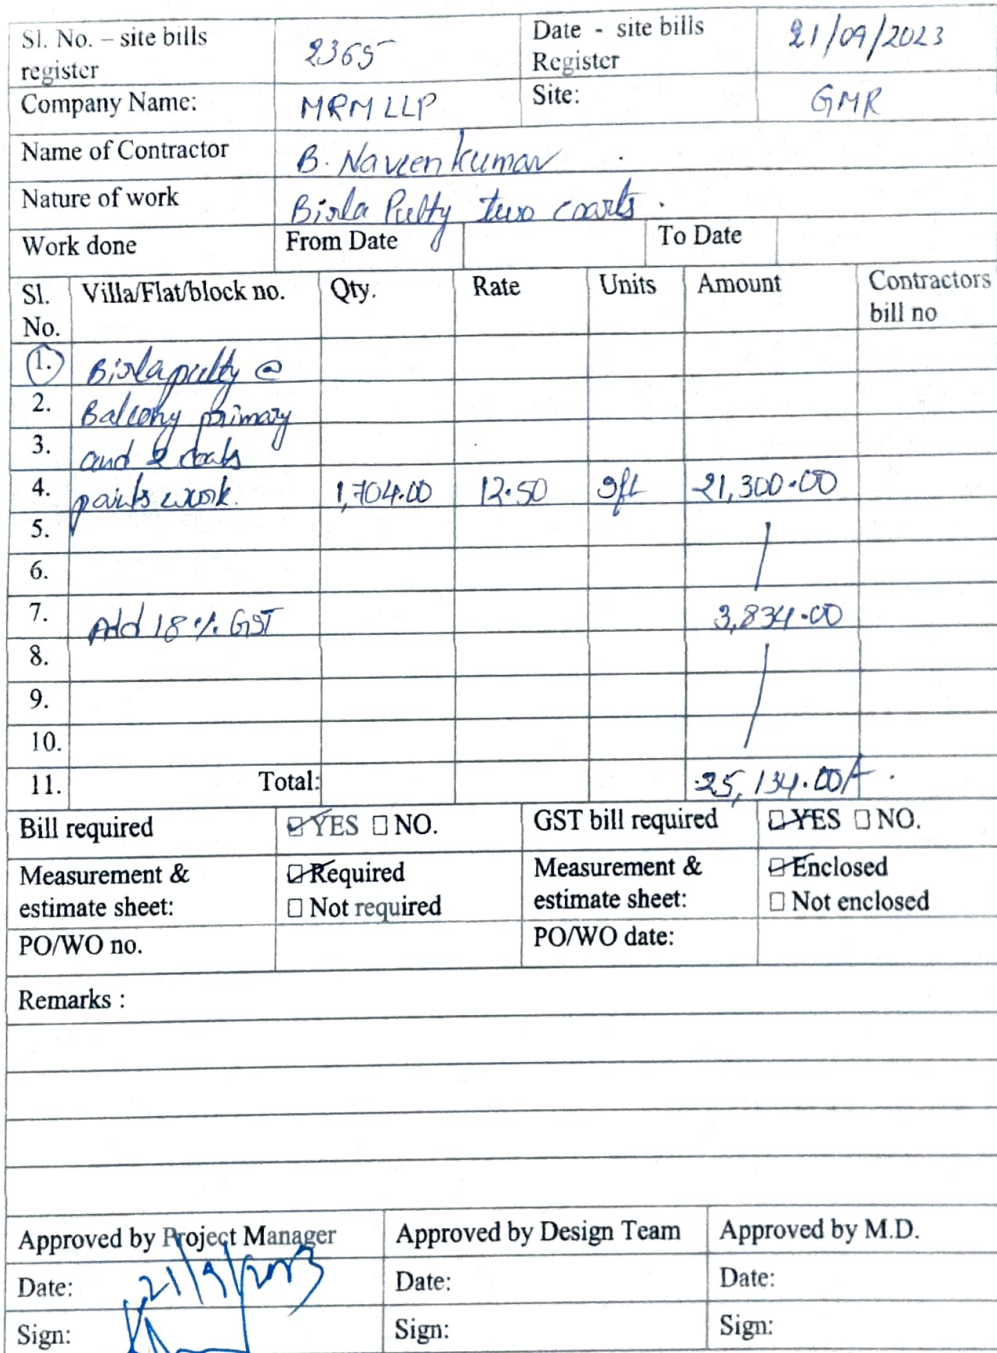 Sl. No. – site bills register 2365 Date - site bills Register 21/09/2023
Company Name: MRM LLP Site: GMR
Name of Contractor B. Naveen kumar
Nature of work Birla Putty two coarts.
Work done From Date To Date
Sl. No. Villa/Flat/block no. Qty. Rate Units Amount Contractors bill no
1. Birla putty @
2. Balcony primary
3. and 2 coats
4. paints work. 1,704.00 12.50 sft 21,300.00
5.
6.
7. Add 18% GST 3,834.00
8.
9.
10.
11. Total: 25,134.00/-
Bill required YES NO. GST bill required YES NO.
Measurement & estimate sheet: Required Not required Measurement & estimate sheet: Enclosed Not enclosed
PO/WO no. PO/WO date:
Remarks :
Approved by Project Manager Approved by Design Team Approved by M.D.
Date: 21/9/2023 Date: Date:
Sign: Sign: Sign: